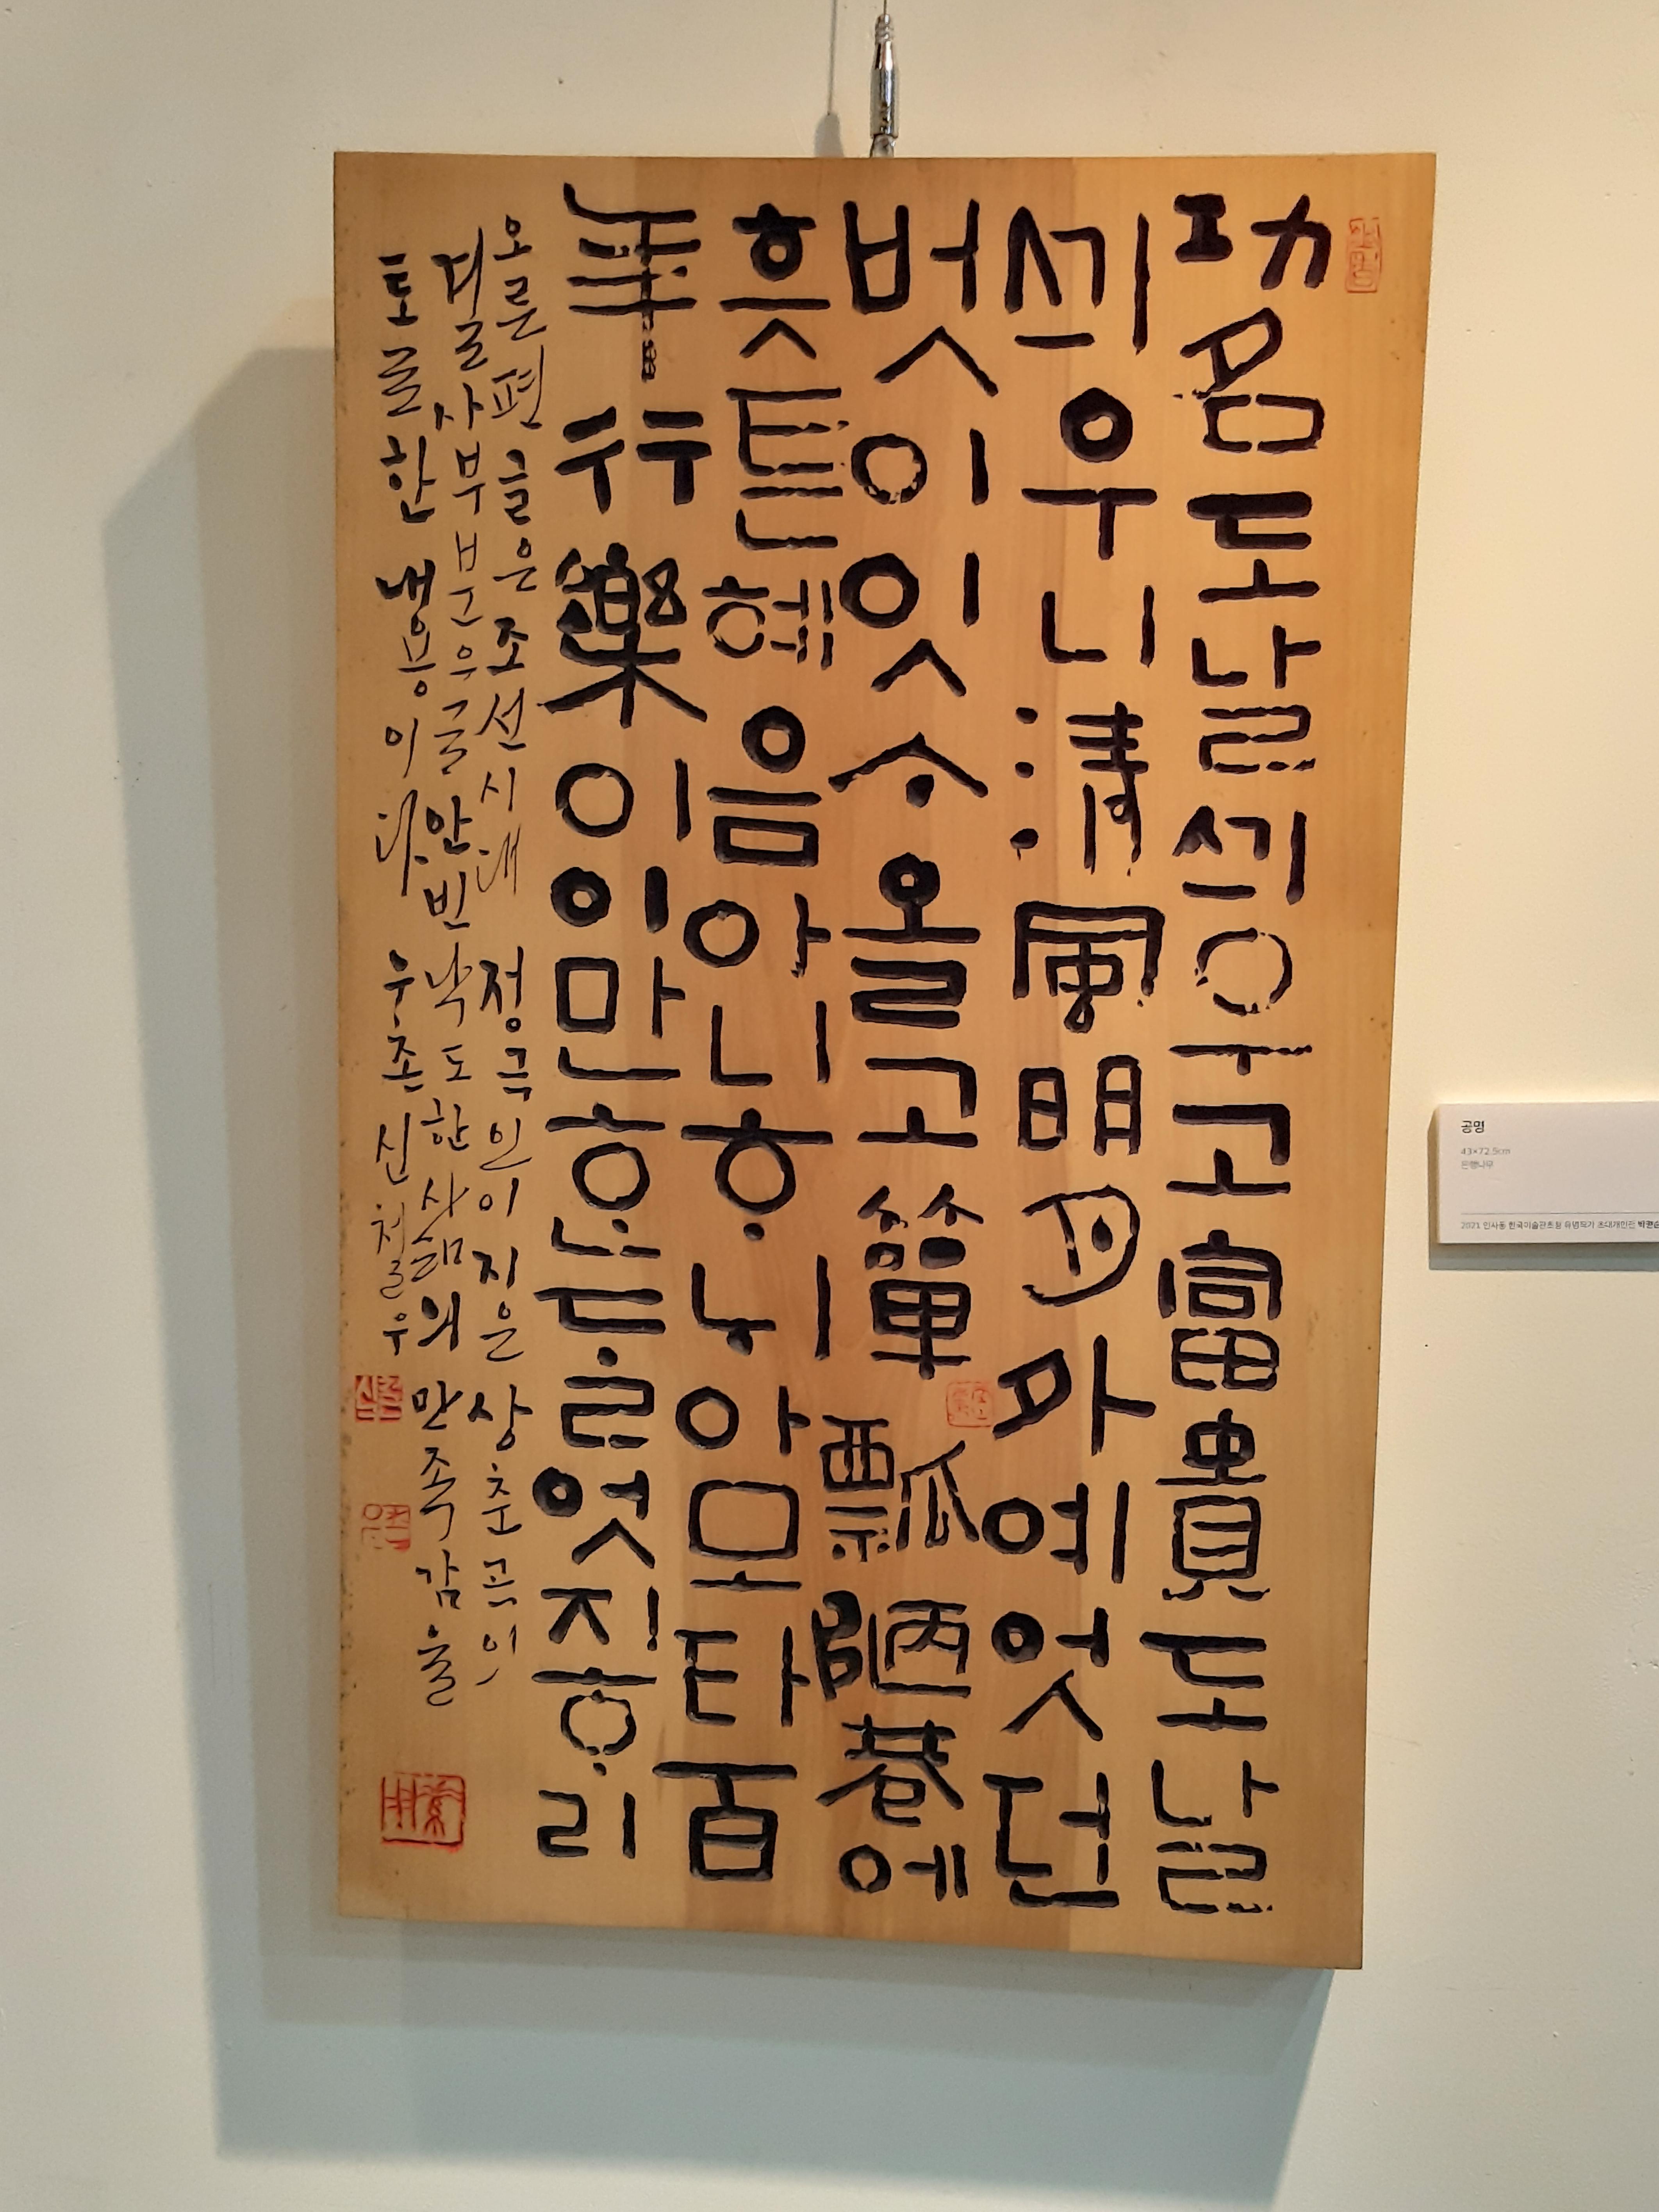 功名도날ᄭᅴ우고富貴도날
ᄭᅴ우니淸風明月外예엇던
벗이잇ᄉᆞ올고簞瓢陋巷에
흣튼혜음아니ᄒᆞᄂᆡ아모타百
年行樂이이만ᄒᆞᆫᄃᆞᆯ엇지ᄒᆞ리
오른편 글은 조선시대 정극인이 지은 상춘곡의
안빈낙도한 삶의 만족감을
토로한 내용이다
공명
43×72.5cm
은행나무
2021 인사동 한국미술관초청 유명작가 초대개인전